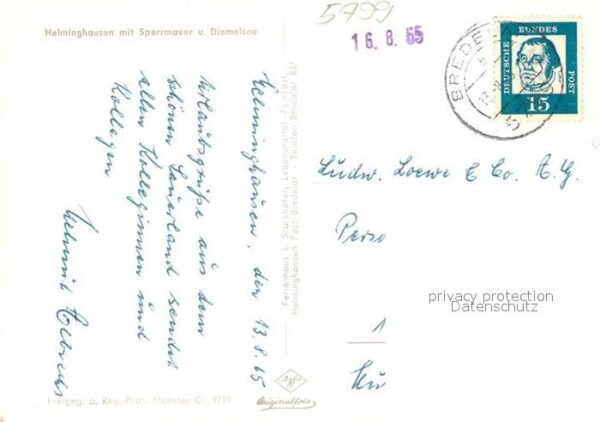 Helminghausen mit Sperrmauer u. Diemelsee
5799
16.8.65
BREDEL
DEUTSCHE
BUNDES
POST
15
Helminghausen, den 13.8.65
Urlaubsgrüße aus dem
schönen Sauerland sendet
allen Kolleginnen und
Kollegen
Helmut
Ferienhaus L. Starkhofer, Lebensmittel - Feinkost
Helminghausen Post Bredelar - Telefon Bredelar 627
Ludw. Loewe & Co. A.G.
Perso
privacy protection
Datenschutz
Originalfoto
Freigeg. d. Reg.-Präs. Münster Cr. 9719